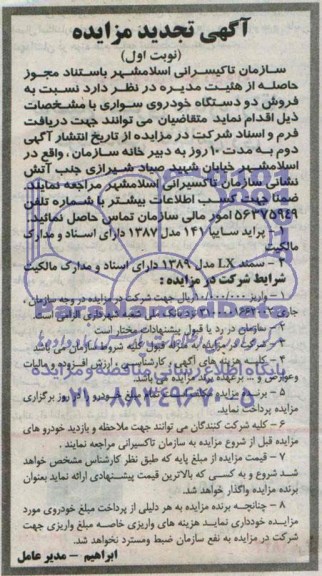 آگهی تجدید مزایده
(نوبت اول)
سازمان تاکسیرانی اسلامشهر باستناد مجوز
حاصله از هئیت مدیره در نظر دارد نسبت به
فروش دو دستگاه خودروی سواری با مشخصات
ذیل اقدام نماید متقاضیان می توانند جهت دریافت
فرم و اسناد شرکت در مزایده از تاریخ انتشار آگهی
دوم به مدت ۱۰ روز به دبیر خانه سازمان ، واقع در
اسلامشهر خیابان شهید صیاد شیرازی جنب آتش
نشانی سازمان تاکسیرانی اسلامشهر مراجعه نمایند
ضمنا جهت کسب اطلاعات بیشتر با شماره تلفن
۵۶۳۷۵۹۴۹ امور مالی سازمان تماس حاصل نمائید.
۱- پراید سایپا ۱۴۱ مدل ۱۳۸۷ دارای اسناد و مدارک
مالکیت
۲- سمند LX مدل ۱۳۸۹ دارای اسناد و مدارک مالکیت
شرایط شرکت در مزایده :
۱- واریز ریال جهت شرکت در مزایده در وجه سازمان ،
جاری
۲- سازمان در رد یا قبول پیشنهادات مختار است
۳- شرکت در مزایده به منزله قبول کلیه شروط سازمان می باشد
۴- کلیه هزینه های آگهی ، کارشناسی ، ارزش افزوده و مالیات
وعوارض و ... برعهده برنده مزایده می باشد.
۵- برنده مزایده مبلغ خودرو را روز برگزاری
مزایده پرداخت نماید.
۶- کلیه شرکت کنندگان می توانند جهت ملاحظه و بازدید خودرو های
مزایده قبل از شروع مزایده به سازمان تاکسیرانی مراجعه نمایند .
۷- قیمت مزایده از مبلغ پایه که طبق نظر کارشناس مشخص خواهد
شد شروع و به کسی که بالاترین قیمت پیشنهادی ارائه نماید بعنوان
برنده مزایده واگذار خواهد شد.
۸- چنانچه برنده مزایده به هر دلیلی از پرداخت مبلغ خودروی مورد
مزایده خودداری نماید هزینه های واریزی خاصه مبلغ واریزی جهت
شرکت در مزایده به نفع سازمان ضبط ومسترد نخواهد شد.
ابراهیم - مدیر عامل
پایگاه اطلاع رسانی مناقصه و مزایده
۰۲۱-۸۸۳۴۹۶۷۰-۵